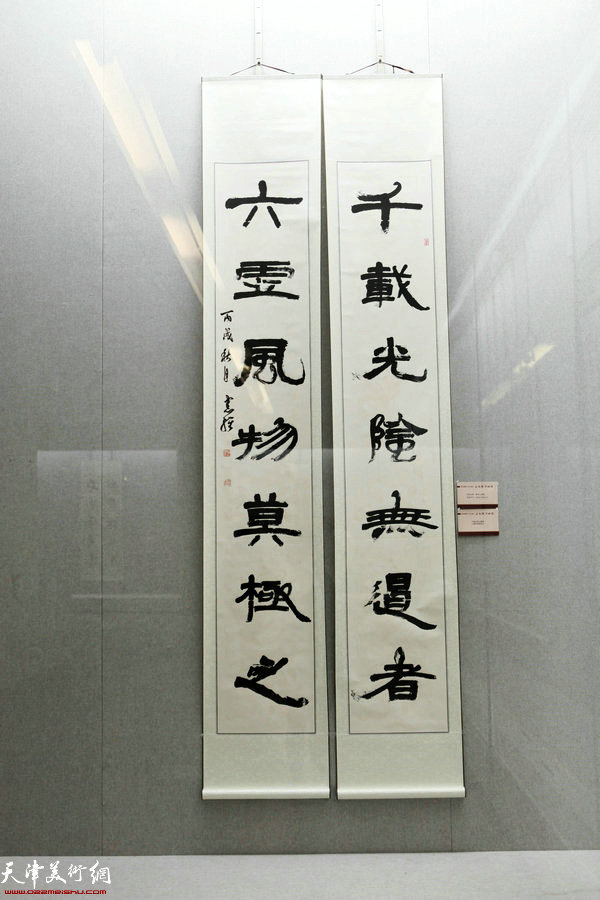 千載光陰無遏者
六虛風物莫極之
丙戌秋月
天津美術網
www.022meishu.com